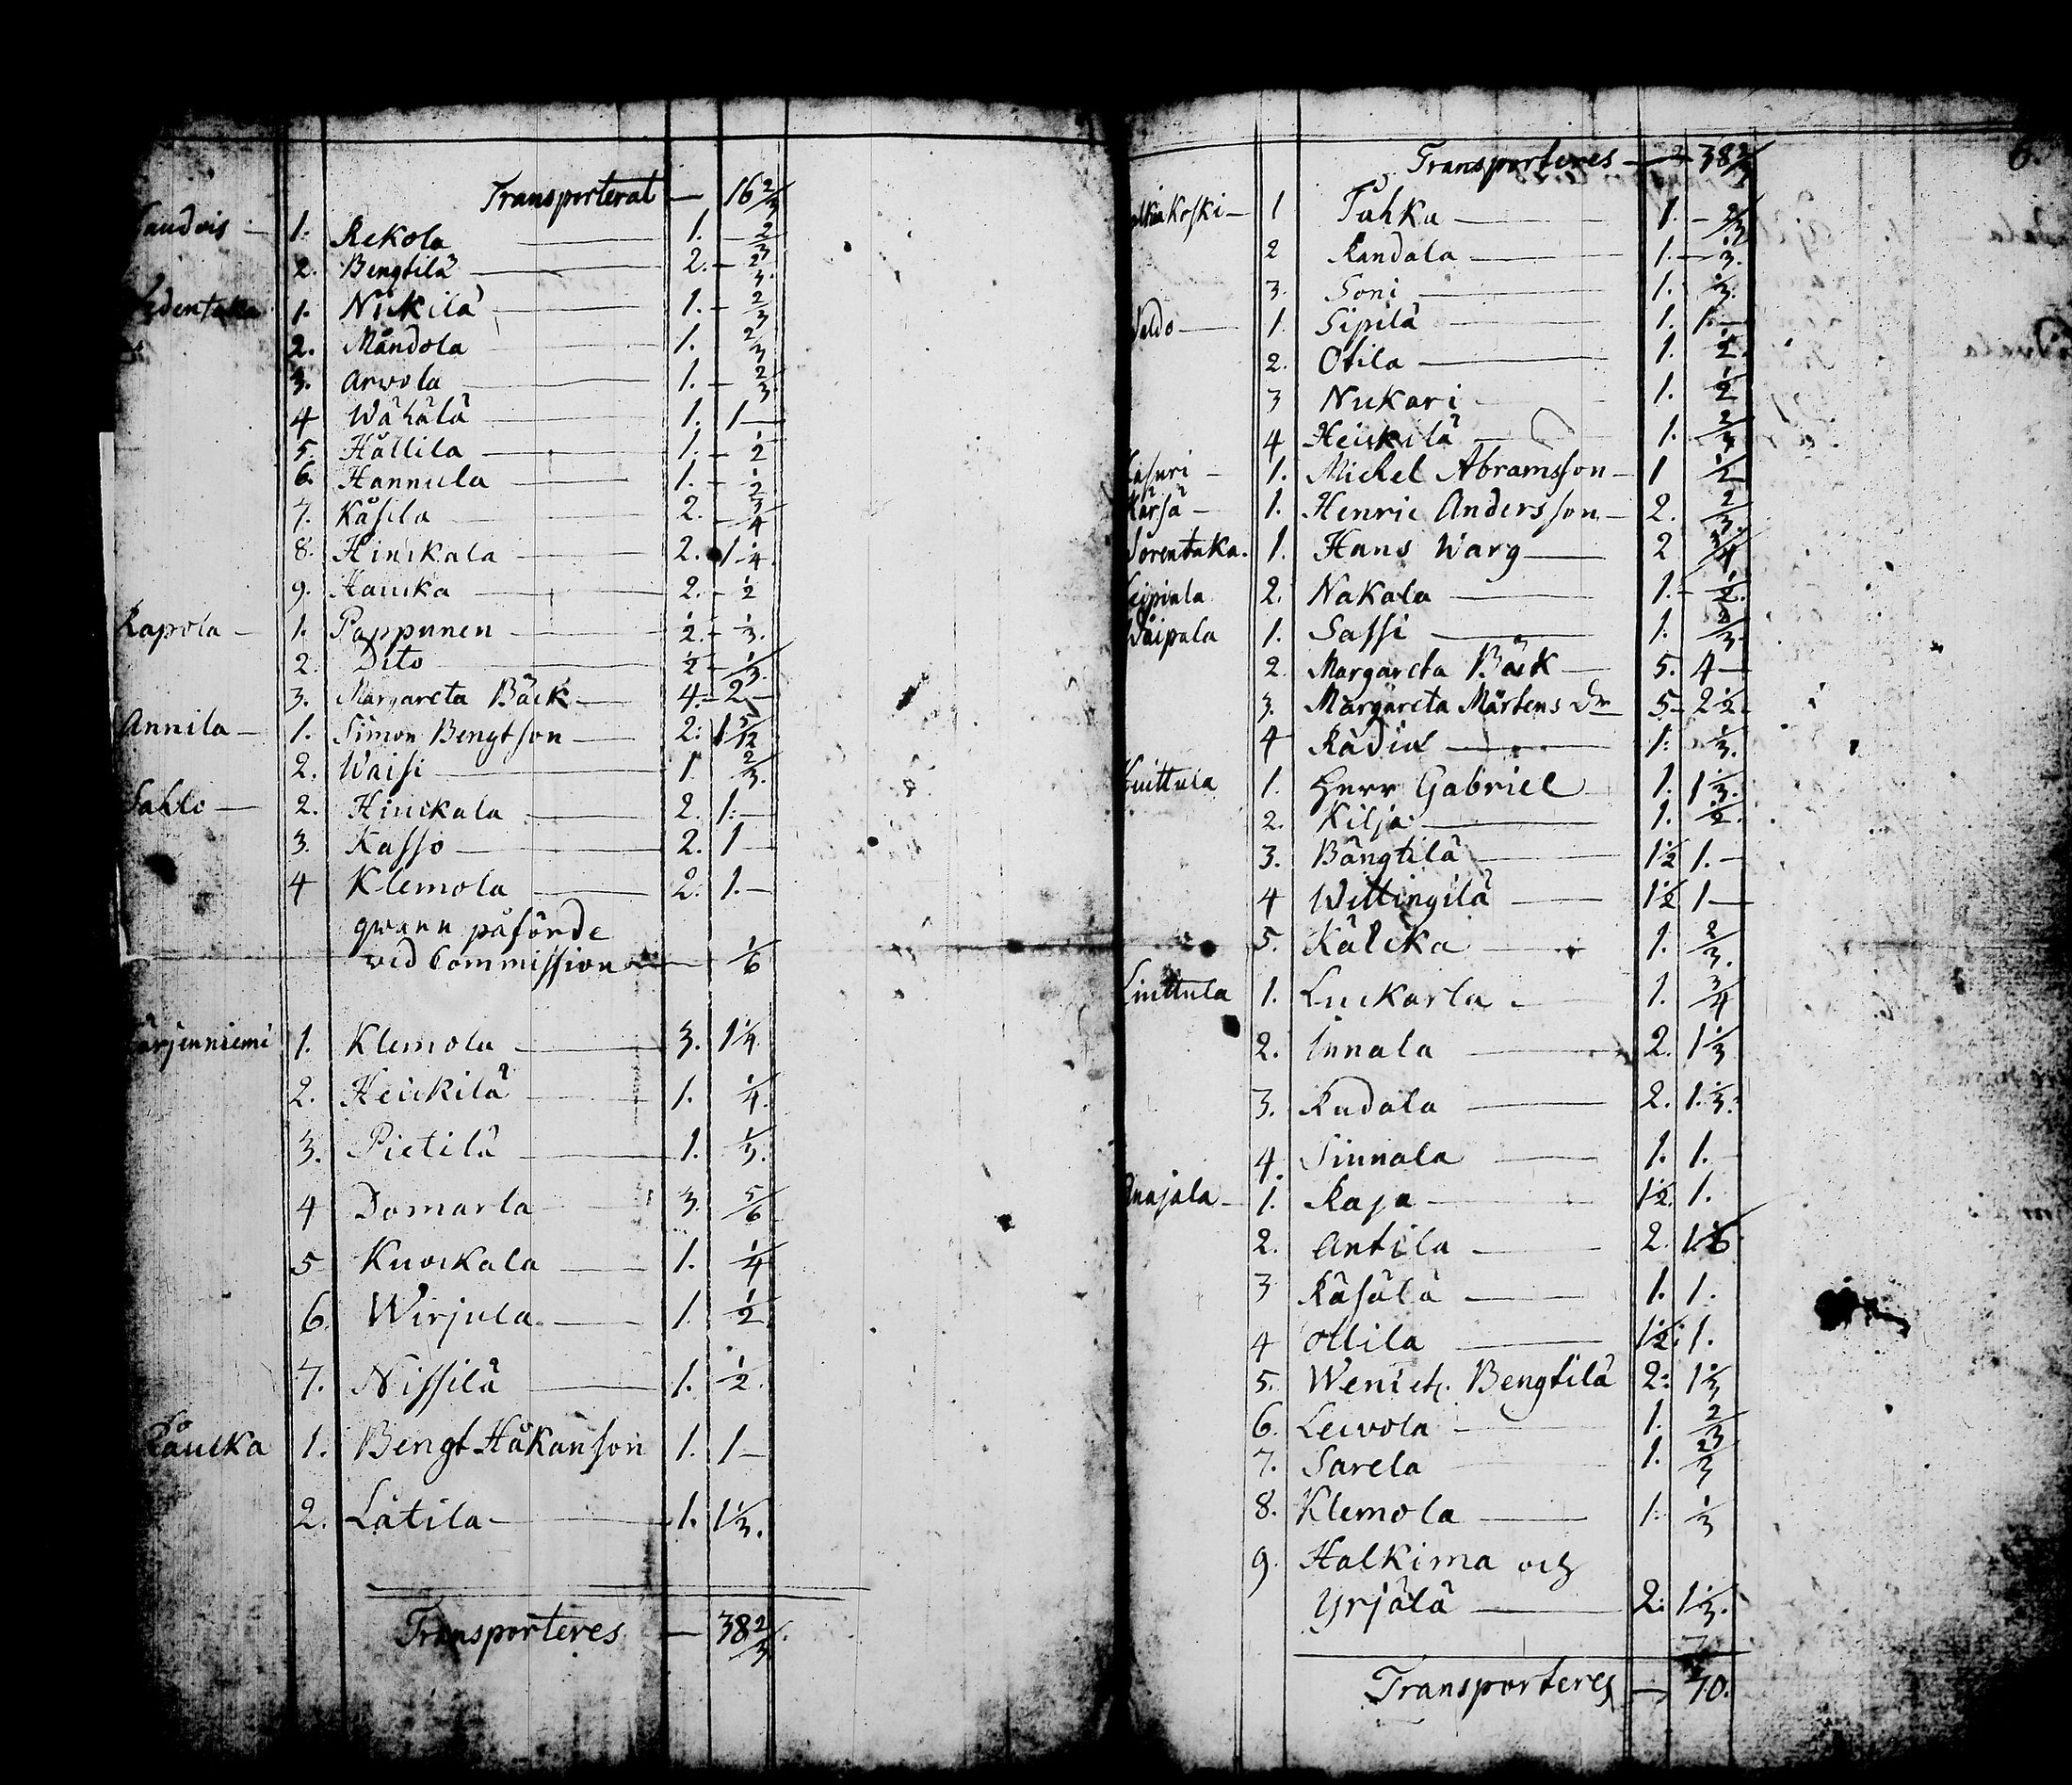 Transporterat — 16 2/3
1. Rekola — 1. — 2/3
2. Bengtilä — 2. — 2/3.
1. Nickilä — 1. — 2/3
2. Måndola 1. 2/3
3. Arvola — 1. — 2/3
4 Wähälä — 1. 1 —
5. Hållila — 1. — 1/2
6. Hannula — 1. — 1/2
7. Kåsila — 2. — 3/4
8. Hinckala — 2. 1 1/4.
9. Haucka — 2. — 1/2
Rapola — 1. Pappunen — 1/2. — 1/3.
2. Dito — 1/2 — 1/3.
3. Margareta Bäck — 4. — 2 —
Annila — 1. Simon Bengtson — 2. 1 5/12
2. Waisi — 1. 2/3.
Sahlo — 2. Hinckala — 2. 1. —
3. Kasso — 2. 1 —
4 Klemola — 2. 1. —
qwarn påförde
vid Commission — 1/6
1. Klemola — 3. 1 1/4.
2. Heickilä — 1. 1/4.
3. Pietilä — 1. 1/3.
4 Domarla — 3. 5/6
5 Kuockala — 1. 1/4
6. Wirjula — 1. 1/2
7. Nissilä — 1. 1/2.
1. Bengt Håkanson 1. 1 —
2. Låtila — 1. 1 1/3.
Transporteres — 38 2/3.
6.
Transporteres — 38 2/3
1 Tuhka — 1. — 2/3
2 Randala — 1. — 1/3.
3. Soni — 1. 1/3.
1. Sipilä — 1. 1. —
2. Otila — 1. 1/2.
3 Nukari 1. 1/2
4 Heickilä — 1. 2/3
1. Michel Abramsson — 1 1/2
1. Henric Andersson — 2. 2/3.
1. Hans Warg — 2 3/4
2. Nakala — 1. — 1/2.
1. Sassi — 1. 2/3.
2. Margareta Bäck — 5. 4 —
3. Margareta Mårtens Dr — 5 — 2 1/2.
4 — 1. 1/3.
1. Herr Gabriel 1. 1 1/3.
2. Kilja — 1. 1/2.
3. Bängtilä — 1 1/2 1. —
4 Wittingilä — 1 1/2 1 —
5. Kälcka — 1. 2/3.
Liuttula 1. Luckarla — 1. 3/4
2. Innala — 2. 1 1/3
3. Rudala — 2. 1. 1/3.
4. Sinnala — 1. 1. —
1. Raja — 1 1/2. 1.
2. Antila — 2. 1 1/6
3 Räsälä — 1. 1.
4 Ollila — 1 1/2. 1.
5. Bengtilä 2. 1 1/3
6. Leivola — 1. 2/3
7. Sarela — 1. 2/3
8. Klemola — 1. 1/3
9. Halkima och
Yrjälä — 2. 1 1/3.
Transporteres — 70.